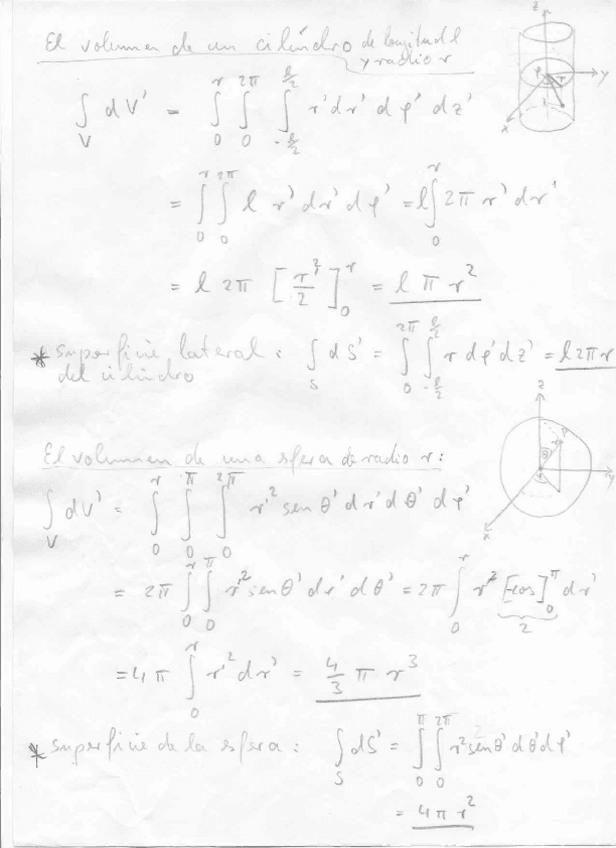 El volumen de un cilindro de longitud l
y radio r
z
φ r
y
x
∫_V dV' = ∫_0^r ∫_0^{2π} ∫_{-l/2}^{l/2} r' dr' dφ' dz'
= ∫_0^r ∫_0^{2π} l r' dr' dφ' = l ∫_0^r 2π r' dr'
= l 2π [r'^2/2]_0^r = l π r^2
* superficie lateral : ∫_S dS' = ∫_0^{2π} ∫_{-l/2}^{l/2} r dφ' dz' = l 2π r
del cilindro
El volumen de una sfera de radio r :
z
θ
y
x
∫_V dV' = ∫_0^r ∫_0^π ∫_0^{2π} r'^2 sen θ' dr' dθ' dφ'
= 2π ∫_0^r ∫_0^π r'^2 sen θ' dr' dθ' = 2π ∫_0^r r'^2 [-cos]_0^π dr'
2
= 4π ∫_0^r r'^2 dr' = 4/3 π r^3
* superficie de la sfera : ∫_S dS' = ∫_0^π ∫_0^{2π} r^2 sen θ' dθ' dφ'
= 4π r^2